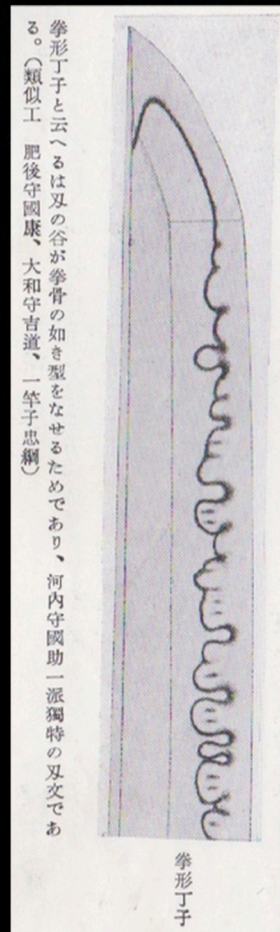 拳形丁子
拳形丁子と云へるは刄の谷が拳骨の如き型をなせるためであり、河内守國助一派獨特の刄文であ
る。（類似工　肥後守國康、大和守吉道、一竿子忠綱）